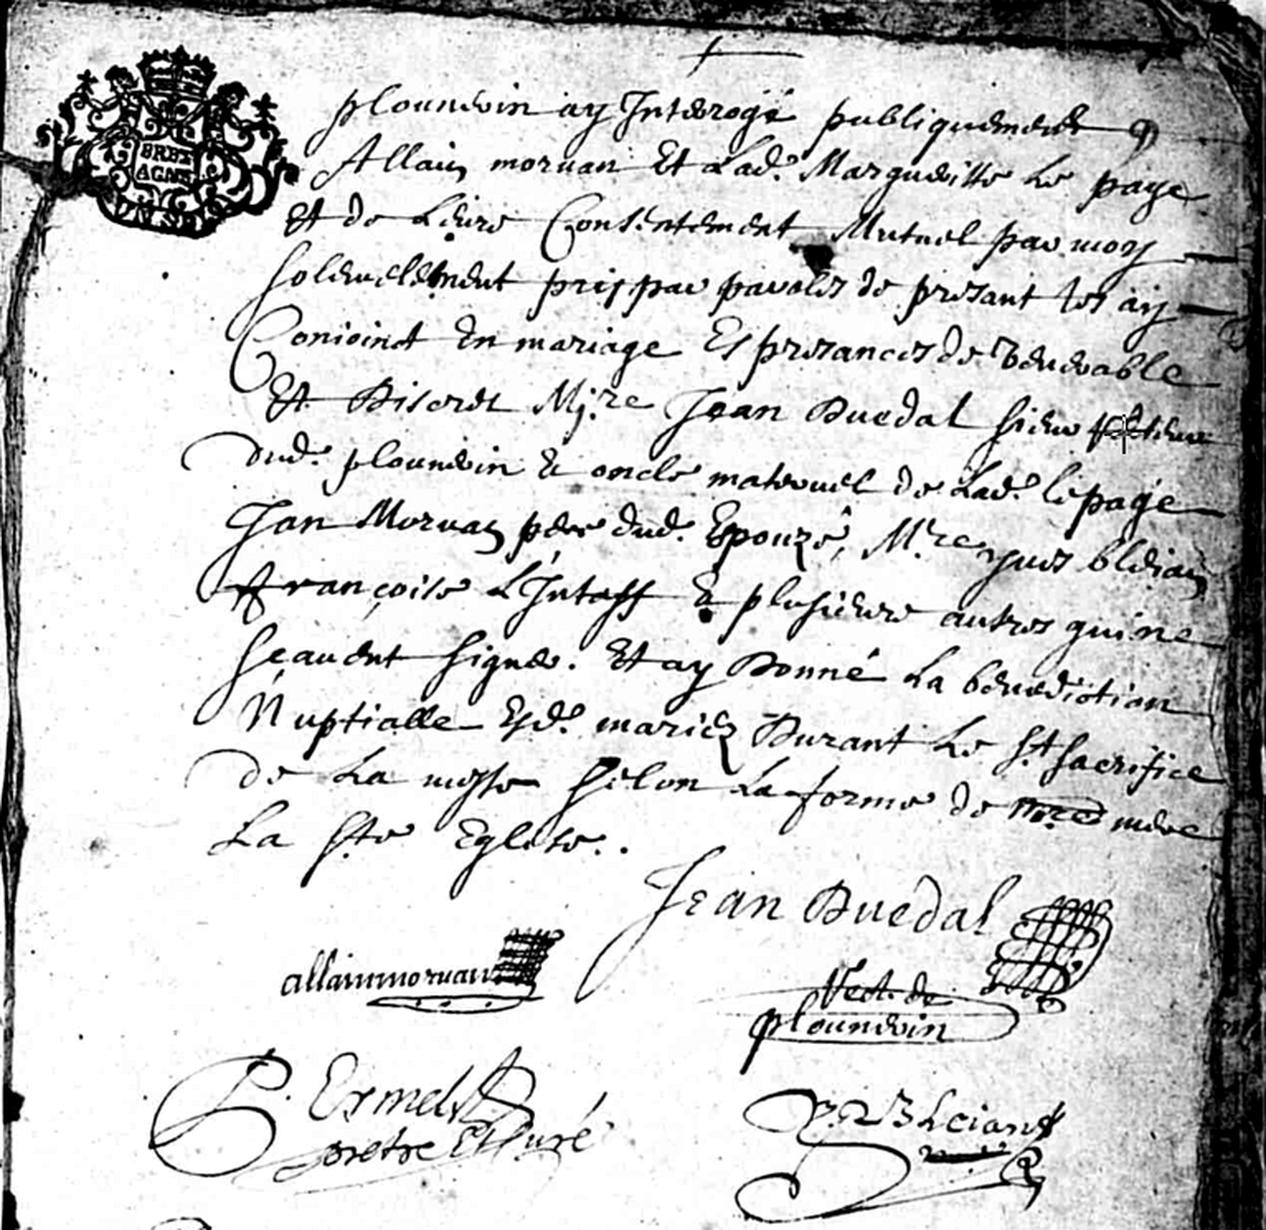 BRET
AGNE
UN SOL
plounevin ay Interogé publiquement
Allain morvan Et Lad.e Margueritte Le page
Et de Leure Consentement Mutuel par moy
solemelement pris par parolles de presant les ay
Conioinct En mariage Es presances de venerable
Et Discret M.re Jean Duedal sieur
dud. plounevin & oncle maternel de Lad.e lepage
Jan Morvan pere dud. Epouzé, M.re yves bleian
françoise & plusieurs autres qui ne
scavent signer. Et ay Donné La benediction
Nuptialle Esd. mariez Durant Le S.t sacrifice
de La messe selon La forme de nre mere
La S.te Eglise.
Jean Duedal
allain morvan
Rect. de
plounevin
P. Ermel
pretre Et Curé
Y. Bleiant